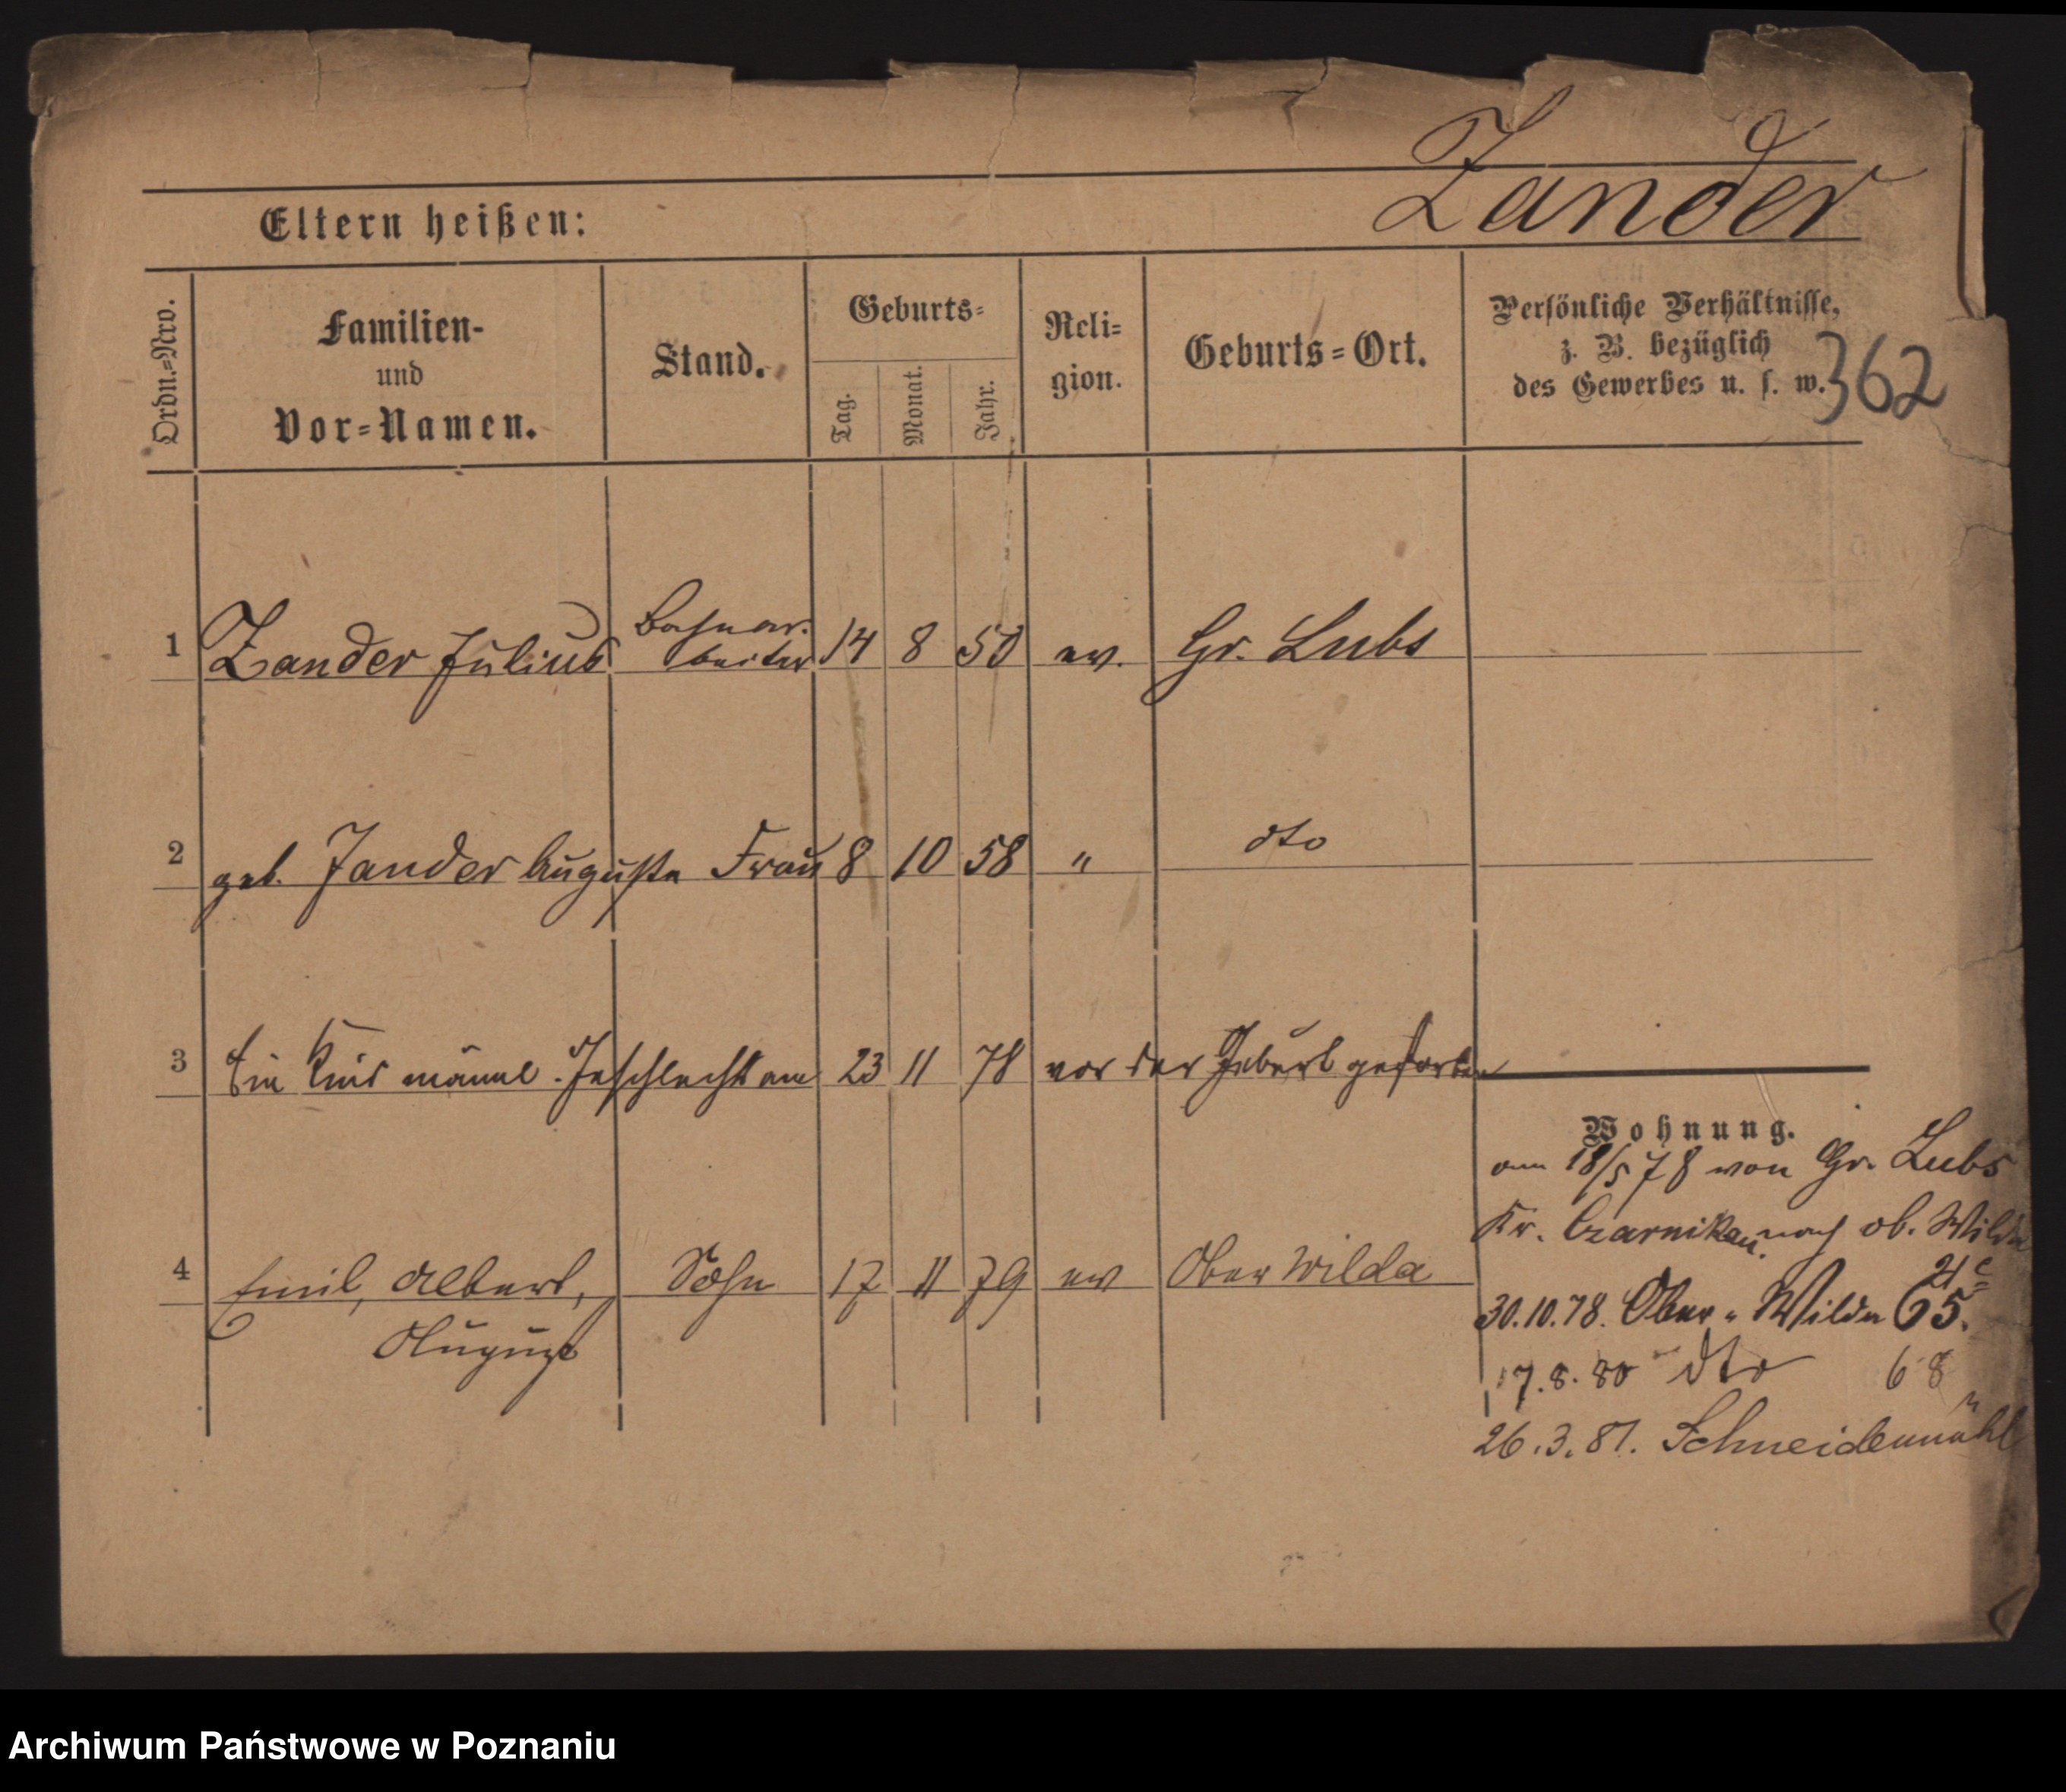 Zander
Eltern heißen:
Ordn.=Nro.
Familien-
und
Vor=Namen.
Stand.
Geburts=
Tag.
Monat.
Jahr.
Reli=
gion.
Geburts=Ort.
Persönliche Verhältnisse,
z. B. bezüglich
des Gewerbes u. s. w.
362
1 Zander Julius Bahnar-
beiter 14 8 50 ev. Gr. Lubs
2 geb. Zander Auguste Frau 8 10 58 " dto
3 Ein Kind männl. Geschlechts am 23 11 78 vor der Geburt gestorben
Wohnung.
am 18/5 78 von Gr. Lubs
Kr. Czarnikau nach ob. Wilda
21c
4 Emil, Albert, Sohn 17 11 79 ev Ober Wilda
August
30.10.78. Ober-Wilda 65.
17.8.80 dto 68
26.3.81. Schneidemühl
Archiwum Państwowe w Poznaniu